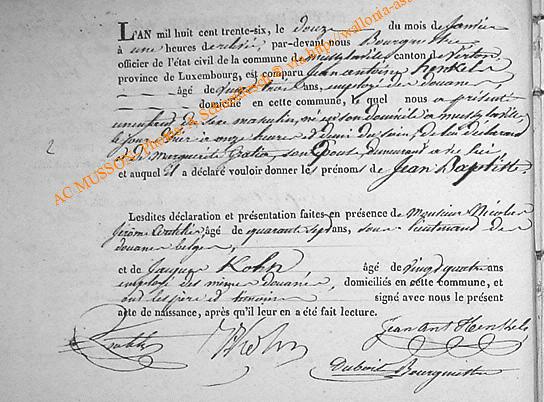 L'AN mil huit cent trente-six, le douz du mois de Janvier
à une heures de relevé, par-devant nous Bourguitte
officier de l'état civil de la commune de Mussy la ville canton de Virton
province de Luxembourg, est comparu Jean antoine Henkels
âgé de vingt trois ans, employé des douanes,
domicilié en cette commune, le quel nous a présenté
un enfant de sexe masculin, né en son domicile à mussy la ville
le jour d'hier à onze heures et demi du soir, de lui déclarant
et de Marguerite son Epouse, demeurant avec lui
et auquel il a déclaré vouloir donner les prénoms de Jean Baptiste.
Lesdites déclaration et présentation faites en présence de Monsieur Nicolas
Jérôme âgé de quarante sept ans, sous lieutenant des
douanes belges,
et de Jacques Kohn âgé de vingt quatre ans
employé des mêmes douanes, domiciliés en cette commune, et
ont les père et témoins signé avec nous le présent
acte de naissance, après qu'il leur en a été fait lecture.
Jean Ant Henkels
JKohn
Dubois Bourguitte
2
AC MUSSON Photo: A. via http://wallonia-as